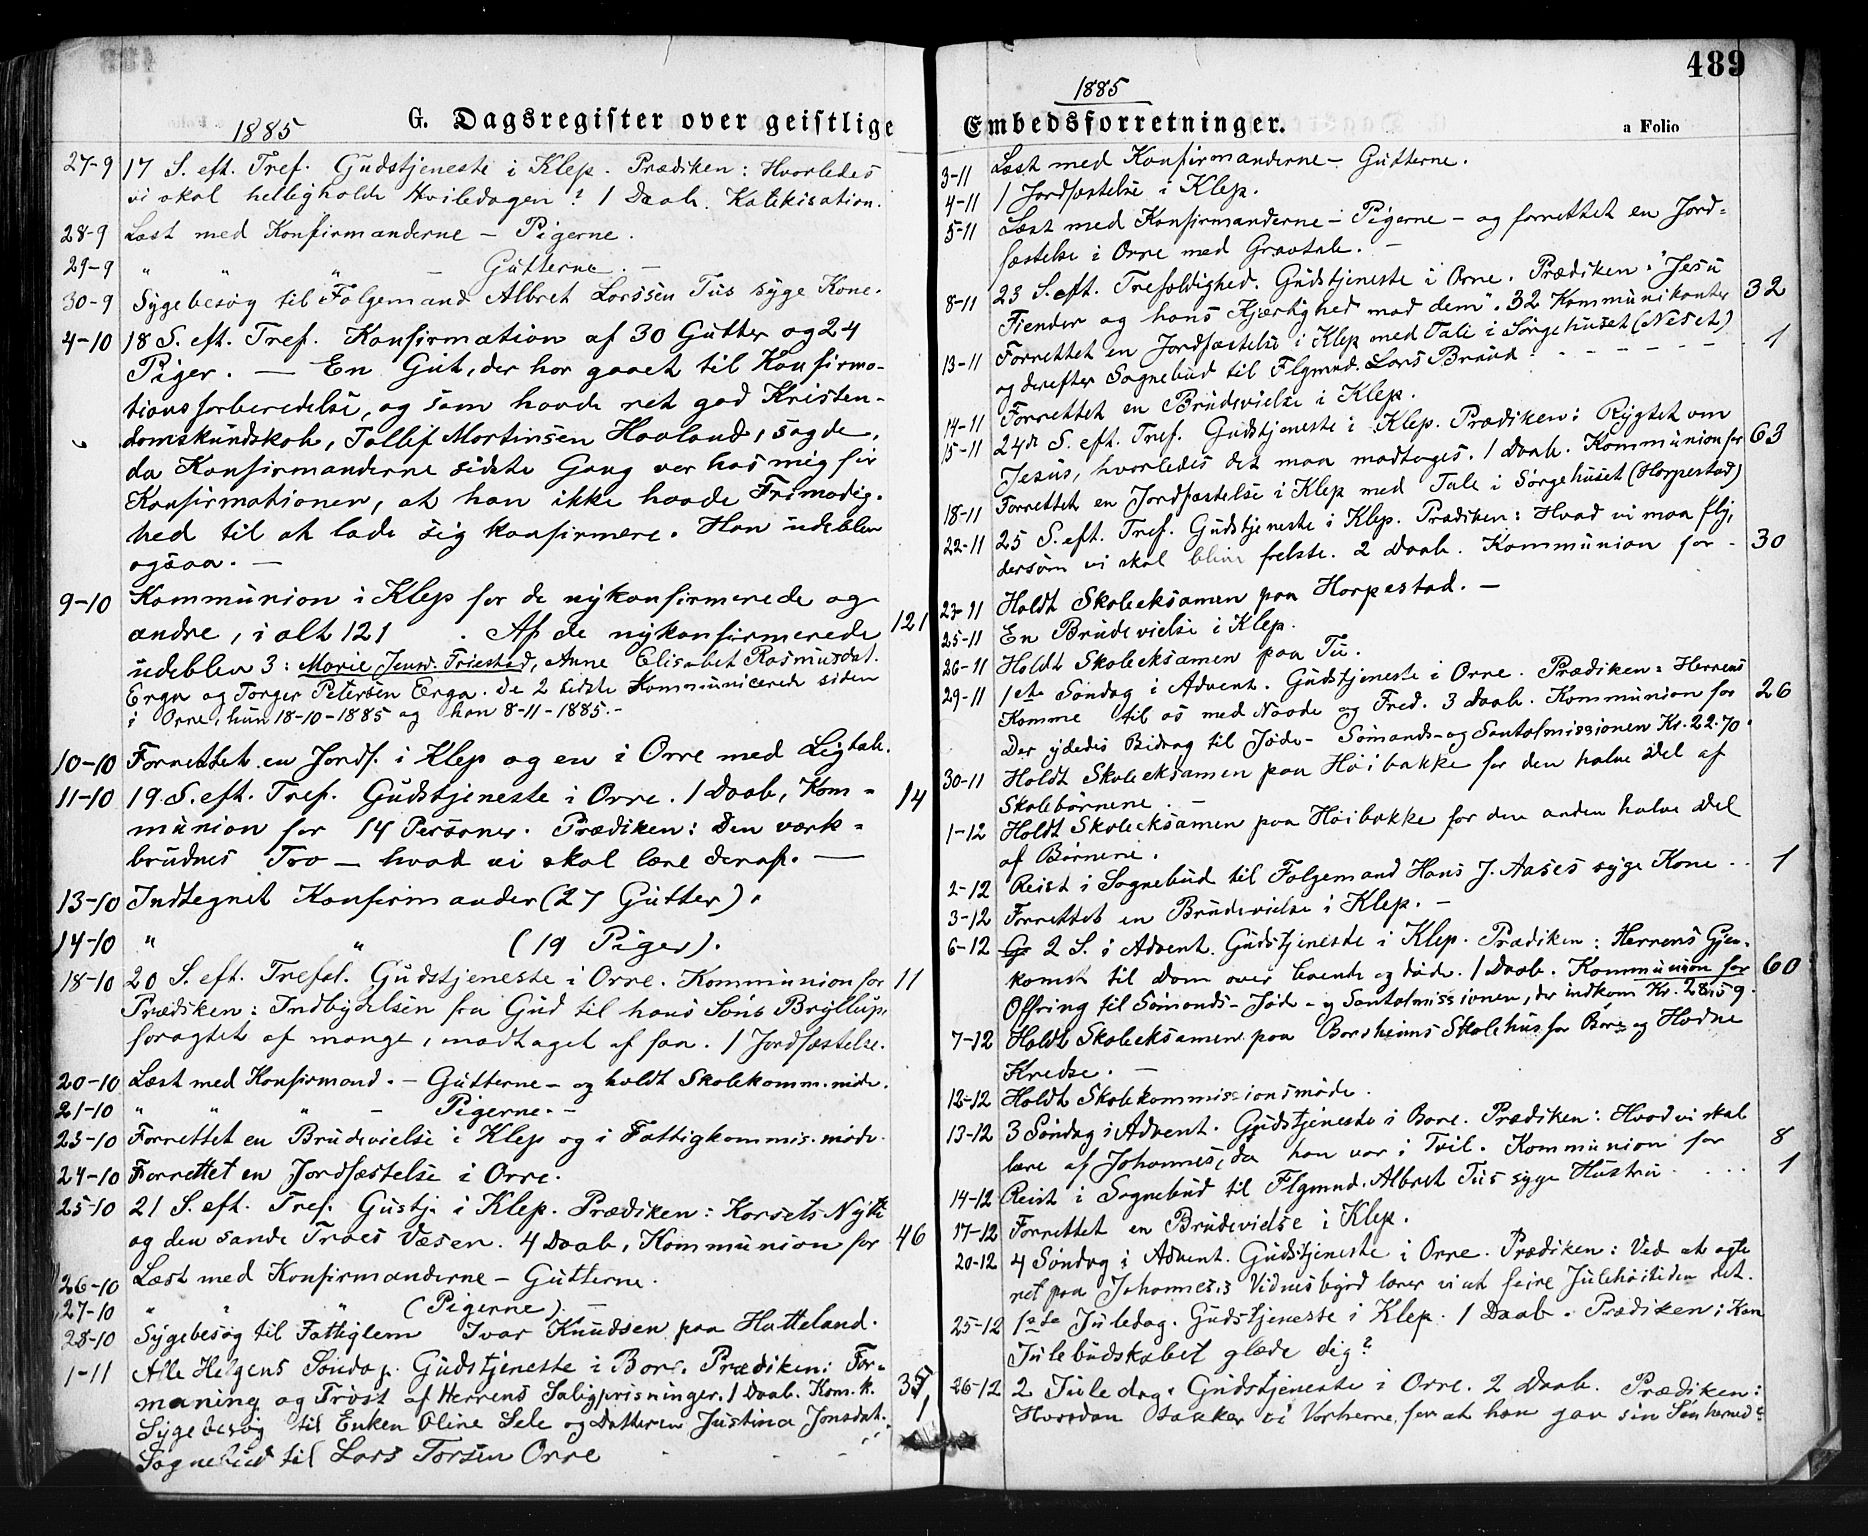 489
1885
1885 G. Dagsregister over geistlige Embedsforretninger. a Folio
27-9 17 S. eft. Tref. Gudstjeneste i Klep. Prædiken: Hvorledes
vi skal helligholde Hviledagen? 1 Daab. Katekisation.
28-9 Læst med Konfirmanderne – Pigerne.
29-9 " " " – Gutterne. –
30-9 Sygebesøg til Folgemand Albret Larssen Tus syge Kone.
4-10 18 S. eft. Tref. Konfirmation af 30 Gutter og 24
Piger. — En Gut, der har gaaet til Konfirma-
tionsforberedelse, og som havde ret god Kristen-
domskundskab, Tollef Mortinsen Haaland, sagde,
da Konfirmanderne sidste Gang var hos mig før
Konfirmationen, at han ikke havde Frimodig-
hed til at lade sig konfirmere. Han udeblev
ogsaa. —
9-10 Kommunion i Klep for de nykonfirmerede og
andre, i alt 121 . Af de nykonfirmerede 121
udeblev 3: Marie Jensd. Friestad, Anne Elisabet Rasmusdat.
Erga og Torger Petersen Erga. De 2 sidste kommunicerede siden
i Orre, hun 18-10-1885 og han 8-11-1885.-
10-10 Forrettet en Jordf. i Klep og en i Orre med Ligtale.
11-10 19 S. eft. Tref. Gudstjeneste i Orre. 1 Daab, Kom- 14
munion for 14 Personer. Prædiken: Den værk-
brudnes Tro — hvad vi skal lære deraf. —
13-10 Indtegnet Konfirmander (27 Gutter).
14-10 " " (19 Piger).
18-10 20 S. eft. Trefol. Gudstjeneste i Orre. Kommunion for 11
Prædiken: Indbydelsen fra Gud til hans Søns Bryllup,
foragtet af mange, modtaget af faa. 1 Jordfæstelse.
20-10 Læst med Konfirmand. – Gutterne – og holdt Skolekomm.møde.
21-10 " " " – Pigerne. –
23-10 Forrettet en Brudevielse i Klep og i Fattigkommis.møde.
24-10 Forrettet en Jordfæstelse i Orre.
25-10 21 S. eft. Tref. Gustj. i Klep. Prædiken: Korsets Nytte
og den sande Troes Væsen. 4 Daab, Kommunion for 46
26-10 Læst med Konfirmanderne – Gutterne.
27-10 " " " (Pigerne). –
28-10 Sygebesøg til Fattiglem Ivar Knudsen paa Hatteland.
1-11 Alle Helgens Søndag. Gudstjeneste i Bore. Prædiken: For-
maning og Trøst af Herrens Saligprisninger. 1 Daab. Kom. f. 35
Sygebesøg til Enken Oline Sele og Datteren Justina Jonsdat.
Sognebud til Lars Torsen Orre 1
3-11 Læst med Konfirmanderne – Gutterne.
4-11 1 Jordfæstelse i Klep.
5-11 Læst med Konfirmanderne – Pigerne – og forrettet en Jord-
fæstelse i Orre med Gravtale. –
8-11 23 S. eft. Trefoldighed. Gudstjeneste i Orre. Prædiken: "Jesu
Fiender og hans Kjærlighed mod dem". 32 Kommunikanter 32
13-11 Forrettet en Jordfæstelse i Klep med Tale i Sørgehuset (Neset)
og derefter Sognebud til Flgmnd. Lars Braud . - - - - - - 1
14-11 Forrettet en Brudevielse i Klep.
15-11 24de S. eft. Tref. Gudstjeneste i Klep. Prædiken: Rygtet om
Jesus, hvorledes det maa modtages. 1 Daab. Kommunion for 63
18-11 Forrettet en Jordfæstelse i Klep med Tale i Sørgehuset (Horpestad)
22-11 25 S. eft. Tref. Gudstjeneste i Klep. Prædiken: Hvad vi maa fly,
dersom vi skal blive frelste. 2 Daab. Kommunion for - 30
23-11 Holdt Skoleeksamen paa Horpestad. –
25-11 En Brudevielse i Klep.
26-11 Holdt Skoleeksamen paa Tu.
29-11 1ste Søndag i Advent. Gudstjeneste i Orre. Prædiken: Herrens
Komme til os med Naade og Fred. 3 Daab. Kommunion for 26
Der ydedes Bidrag til Jøde- Sømands- og Santalmissionen Kr. 22.70.
30-11 Holdt Skoleeksamen paa Høibakke for den halve Del af
Skolebørnene. –
1-12 Holdt Skoleeksamen paa Høibakke for den anden halve Del
af Børnene.
2-12 Reist i Sognebud til Folgemand Hans J. Aases syge Kone . . 1
3-12 Forrettet en Brudevielse i Klep. –
6-12 2 S. i Advent. Gudstjeneste i Klep. Prædiken: Herrens Gjen-
komst til Dom over levende og døde. 1 Daab. Kommunion for 60
Offring til Sømands- Jøde- og Santalmissionen, der indkom Kr. 28.59.
7-12 Holdt Skoleeksamen paa Borsheims Skolehus for Bore og Hodne
Kredse. –
12-12 Holdt Skolekommissionsmøde.
13-12 3 Søndag i Advent. Gudstjeneste i Bore. Prædiken: Hvad vi skal
lære af Johannes, da han var i Tvil. Kommunion for 8
14-12 Reist i Sognebud til Flgmnd. Albret Tus syge Hustru . . . . 1
17-12 Forrettet en Brudevielse i Klep.
20-12 4 Søndag i Advent. Gudstjeneste i Orre. Prædiken: Ved at agte
ret paa Johannes's Vidnesbyrd lærer vi at feire Julehøitiden ret.
25-12 1ste Juledag. Gudstjeneste i Klep. 1 Daab. Prædiken: Kan
Julebudskabet glæde dig?
26-12 2 Juledag. Gudstjeneste i Orre. 2 Daab. Prædiken:
Hvordan takker vi Vorherre for at han gav sin Søn herned?